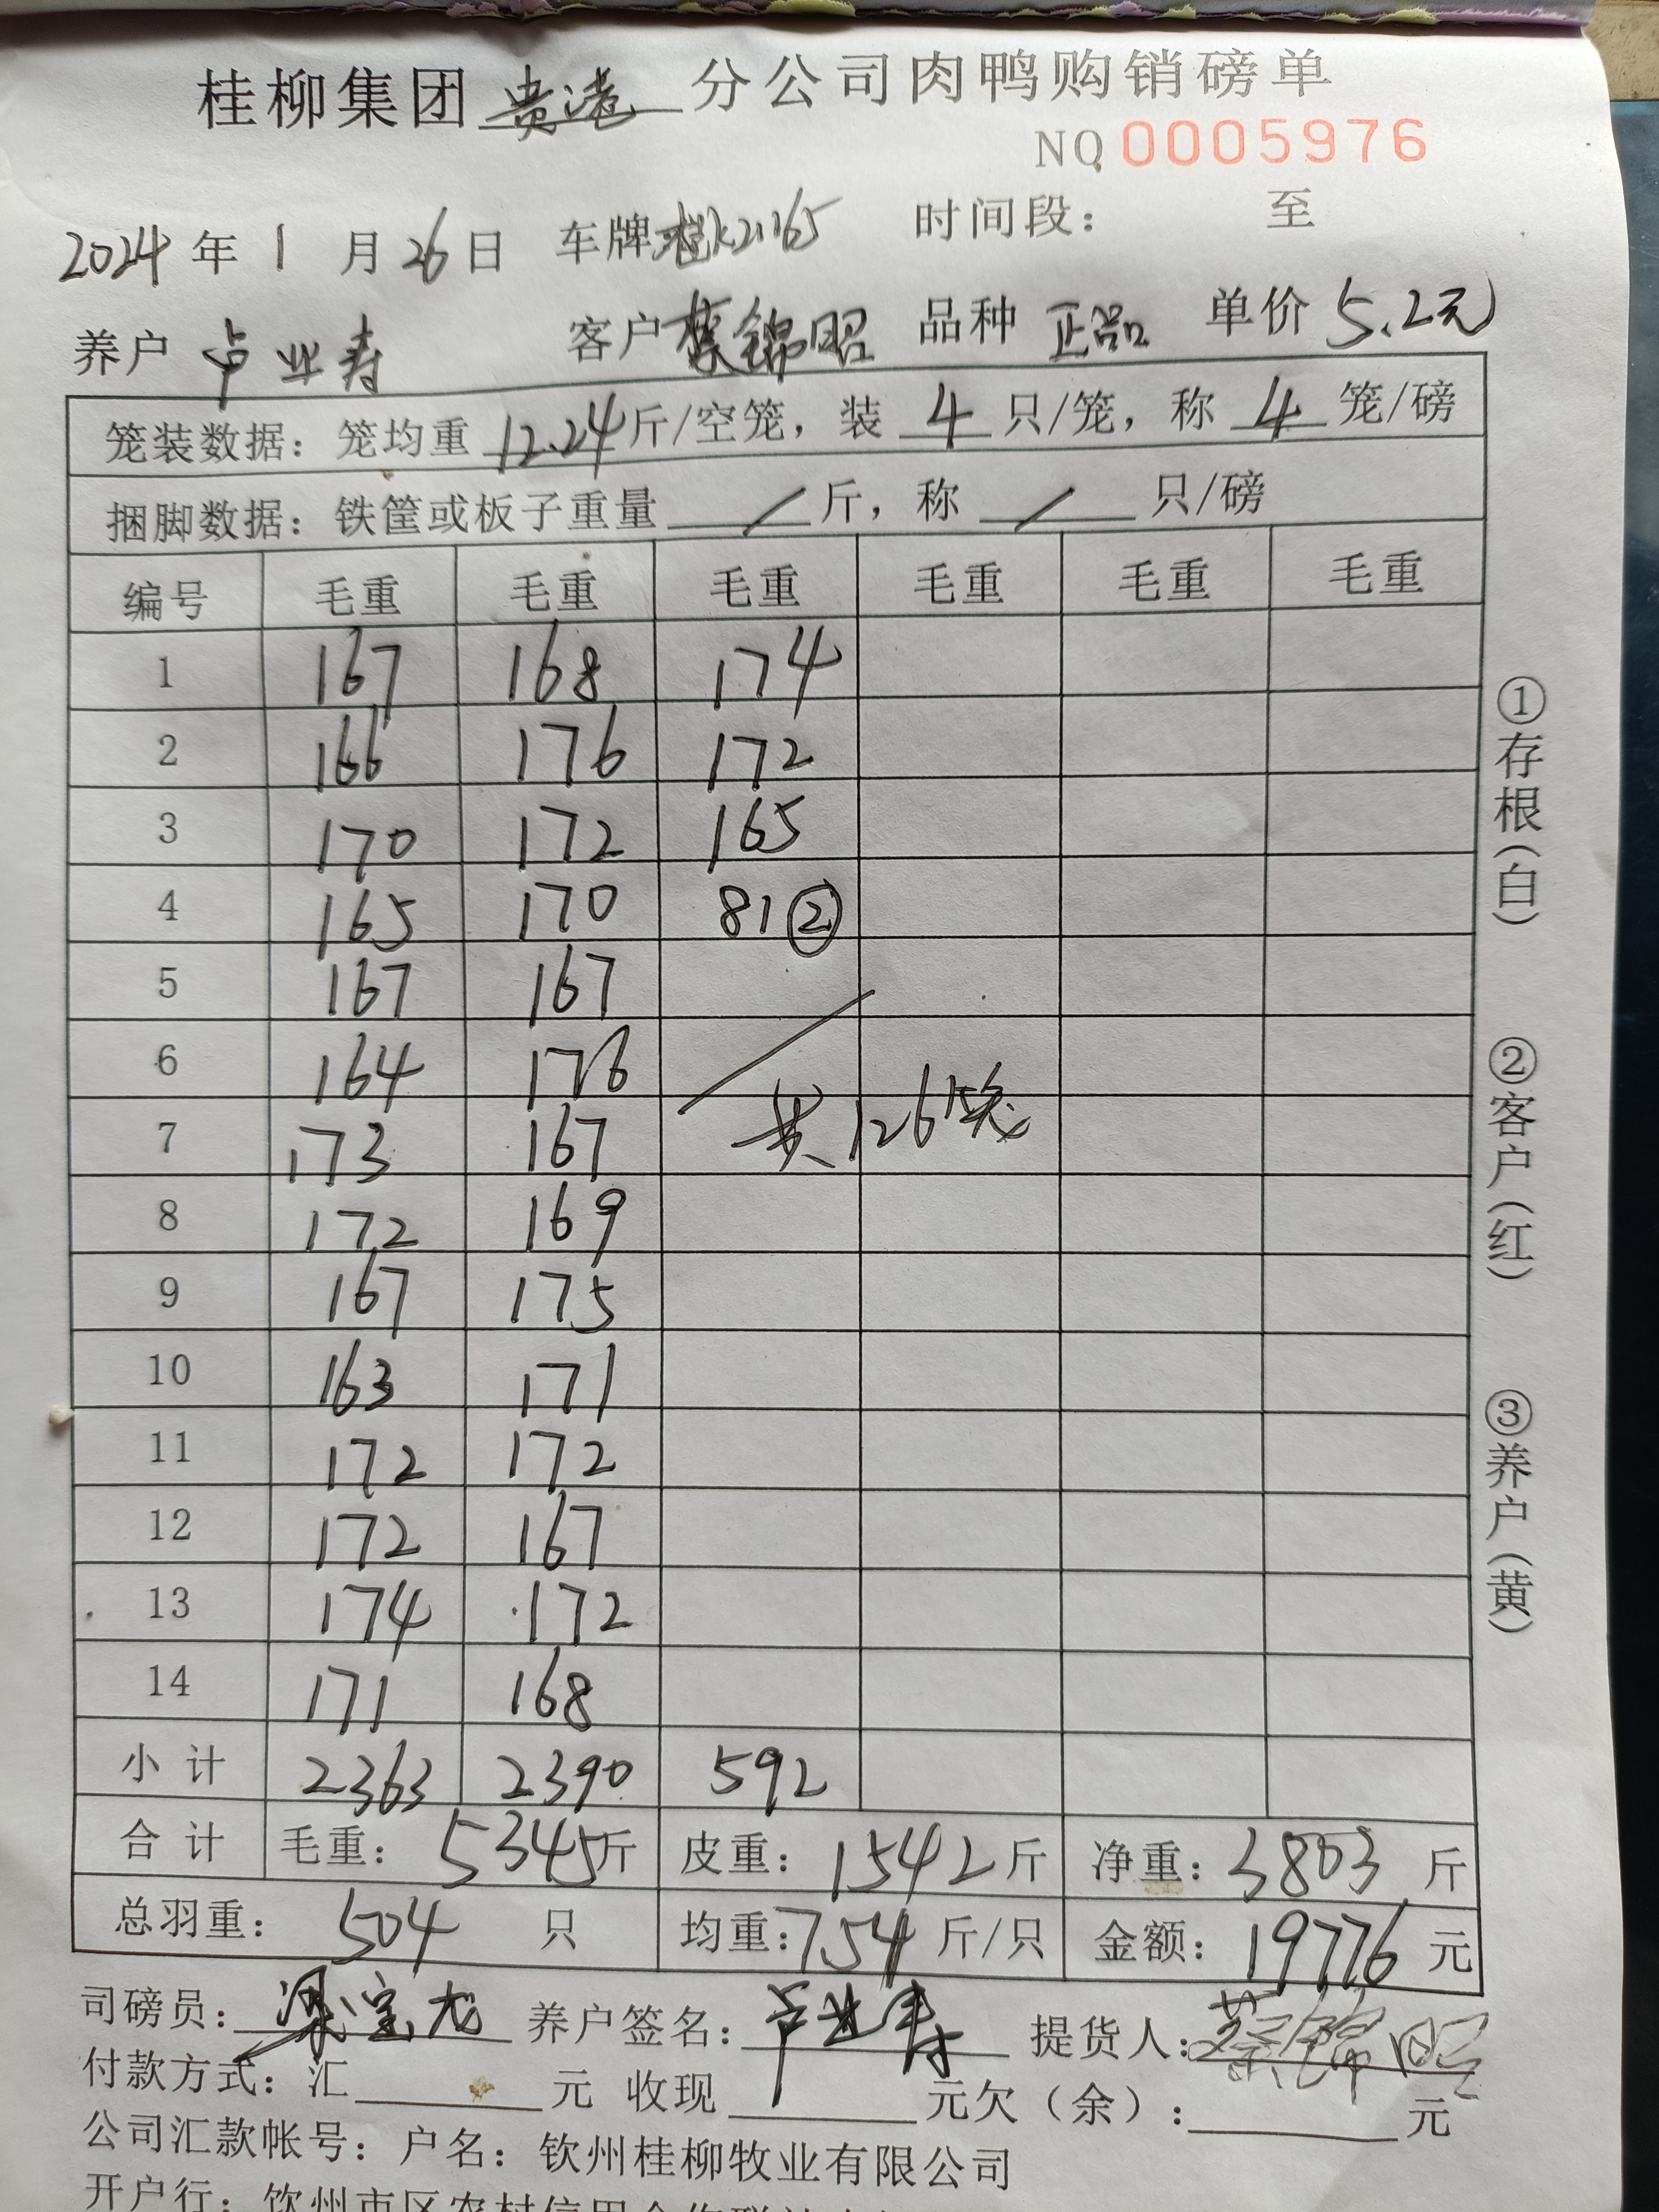 桂柳集团 贵港 分公司肉鸭购销磅单
NO 0005976
2024 年 1 月 26 日 车牌 时间段： 至
养户 卢业寿 客户 蔡锦昭 品种 正品 单价 5.2元
笼装数据：笼均重 12.24 斤/空笼，装 4 只/笼，称 4 笼/磅
捆脚数据：铁筐或板子重量 / 斤，称 / 只/磅
编号 毛重 毛重 毛重 毛重 毛重 毛重
1 167 168 174
2 166 176 172
3 170 172 165
4 165 170 81②
5 167 167
6 164 176
7 173 167 共126笼
8 172 169
9 167 175
10 163 171
11 172 172
12 172 167
13 174 172
14 171 168
小计 2363 2390 592
合计 毛重：5345斤 皮重：1542斤 净重：3803斤
总羽重：504 只 均重：7.54 斤/只 金额：19776 元
司磅员：梁宝龙 养户签名：卢业寿 提货人：蔡锦昭
付款方式：汇 元 收现 元欠（余）： 元
公司汇款帐号：户名：钦州桂柳牧业有限公司
开户行：钦州市区农村信用合作联社
①存根（白）
②客户（红）
③养户（黄）